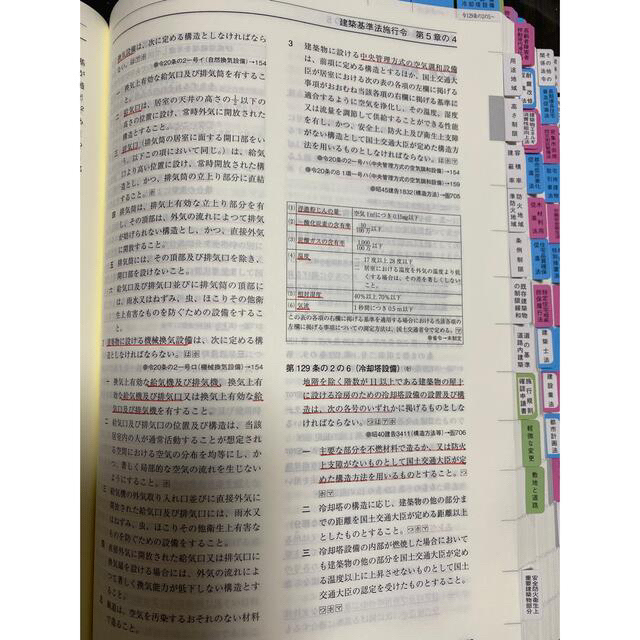 建築基準法施行令　第5章の4
換気設備は、次に定める構造としなければなら
ない。
●令20条の2一号イ(自然換気設備)→154
一　換気上有効な給気口及び排気筒を有するこ
と。
二　給気口は、居室の天井の高さの1/2以下の
高さの位置に設け、常時外気に開放された
構造とすること。
三　排気口(排気筒の居室に面する開口部をい
う。以下この項において同じ。)は、給気
口より高い位置に設け、常時開放された構
造とし、かつ、排気筒の立上り部分に直結
すること。
四　排気筒は、排気上有効な立上り部分を有
し、その頂部は、外気の流れによつて排気
が妨げられない構造とし、かつ、直接外気
に開放すること。
五　排気筒には、その頂部及び排気口を除き、
開口部を設けないこと。
六　給気口及び排気口並びに排気筒の頂部に
は、雨水又はねずみ、虫、ほこりその他衛
生上有害なものを防ぐための設備をするこ
と。
2　建築物に設ける機械換気設備は、次に定める構
造としなければならない。
●令20条の2一号ロ(機械換気設備)→154
一　換気上有効な給気機及び排気機、換気上有
効な給気機及び排気口又は換気上有効な給
気口及び排気機を有すること。
二　給気口及び排気口の位置及び構造は、当該
居室内の人が通常活動することが想定され
る空間における空気の分布を均等にし、か
つ、著しく局部的な空気の流れを生じない
ようにすること。
三　給気機の外気取り入れ口並びに直接外気に
開放された給気口及び排気口には、雨水又
はねずみ、虫、ほこりその他衛生上有害な
ものを防ぐための設備をすること。
四　直接外気に開放された給気口又は排気口に
換気扇を設ける場合には、外気の流れによ
つて著しく換気能力が低下しない構造とす
ること。
五　風道は、空気を汚染するおそれのない材料
で造ること。
3　建築物に設ける中央管理方式の空気調和設備
は、前項に定める構造とするほか、国土交通大
臣が居室における次の表の各項の左欄に掲げる
事項がおおむね当該各項の右欄に掲げる基準に
適合するように空気を浄化し、その温度、湿度
又は流量を調節して供給することができる性能
を有し、かつ、安全上、防火上及び衛生上支障
がない構造として国土交通大臣が定めた構造方
法を用いるものとしなければならない。
●令20条の2一号ハ(中央管理方式の空気調和設備)→154
●令20条の8 1項一号ハ(中央管理方式の空気調和設備)→159
●昭45建告1832(構造方法)→告705
(1)　浮遊粉じんの量　空気1㎥につき0.15mg以下
(2)　一酸化炭素の含有率　10/100万以下
(3)　炭酸ガスの含有率　1,000/100万以下
(4)　温度　17度以上28度以下
居室における温度を外気の温度より低
くする場合は、その差を著しくしない
こと。
(5)　相対湿度　40%以上70%以下
(6)　気流　1秒間につき0.5m以下
この表の各項の右欄に掲げる基準を適用する場合における当該各項の
左欄に掲げる事項についての測定方法は、国土交通省令で定める。
●省令→未制定
第129条の2の6(冷却塔設備)
地階を除く階数が11以上である建築物の屋上
に設ける冷房のための冷却塔設備の設置及び構
造は、次の各号のいずれかに掲げるものとしな
ければならない。
●昭40建告3411(構造方法等)→告706
一　主要な部分を不燃材料で造るか、又は防火
上支障がないものとして国土交通大臣が定
めた構造方法を用いるものとすること。
二　冷却塔の構造に応じ、建築物の他の部分ま
での距離を国土交通大臣が定める距離以上
としたものとすること。
三　冷却塔設備の内部が燃焼した場合において
も建築物の他の部分を国土交通大臣が定め
る温度以上に上昇させないものとして国土
交通大臣の認定を受けたものとすること。
用途地域
高さ制限
容積率
建蔽率
防火地域
準防火地域
条例制限
既存建築物
の制限緩和
道の基準
道路内建築
施行規則
確認申請書
軽微な変更
敷地と道路
安全防火衛生上
重要建築物部分
その他の
関係法令
建築士法
建設業法
都市計画法
木材利用
促進